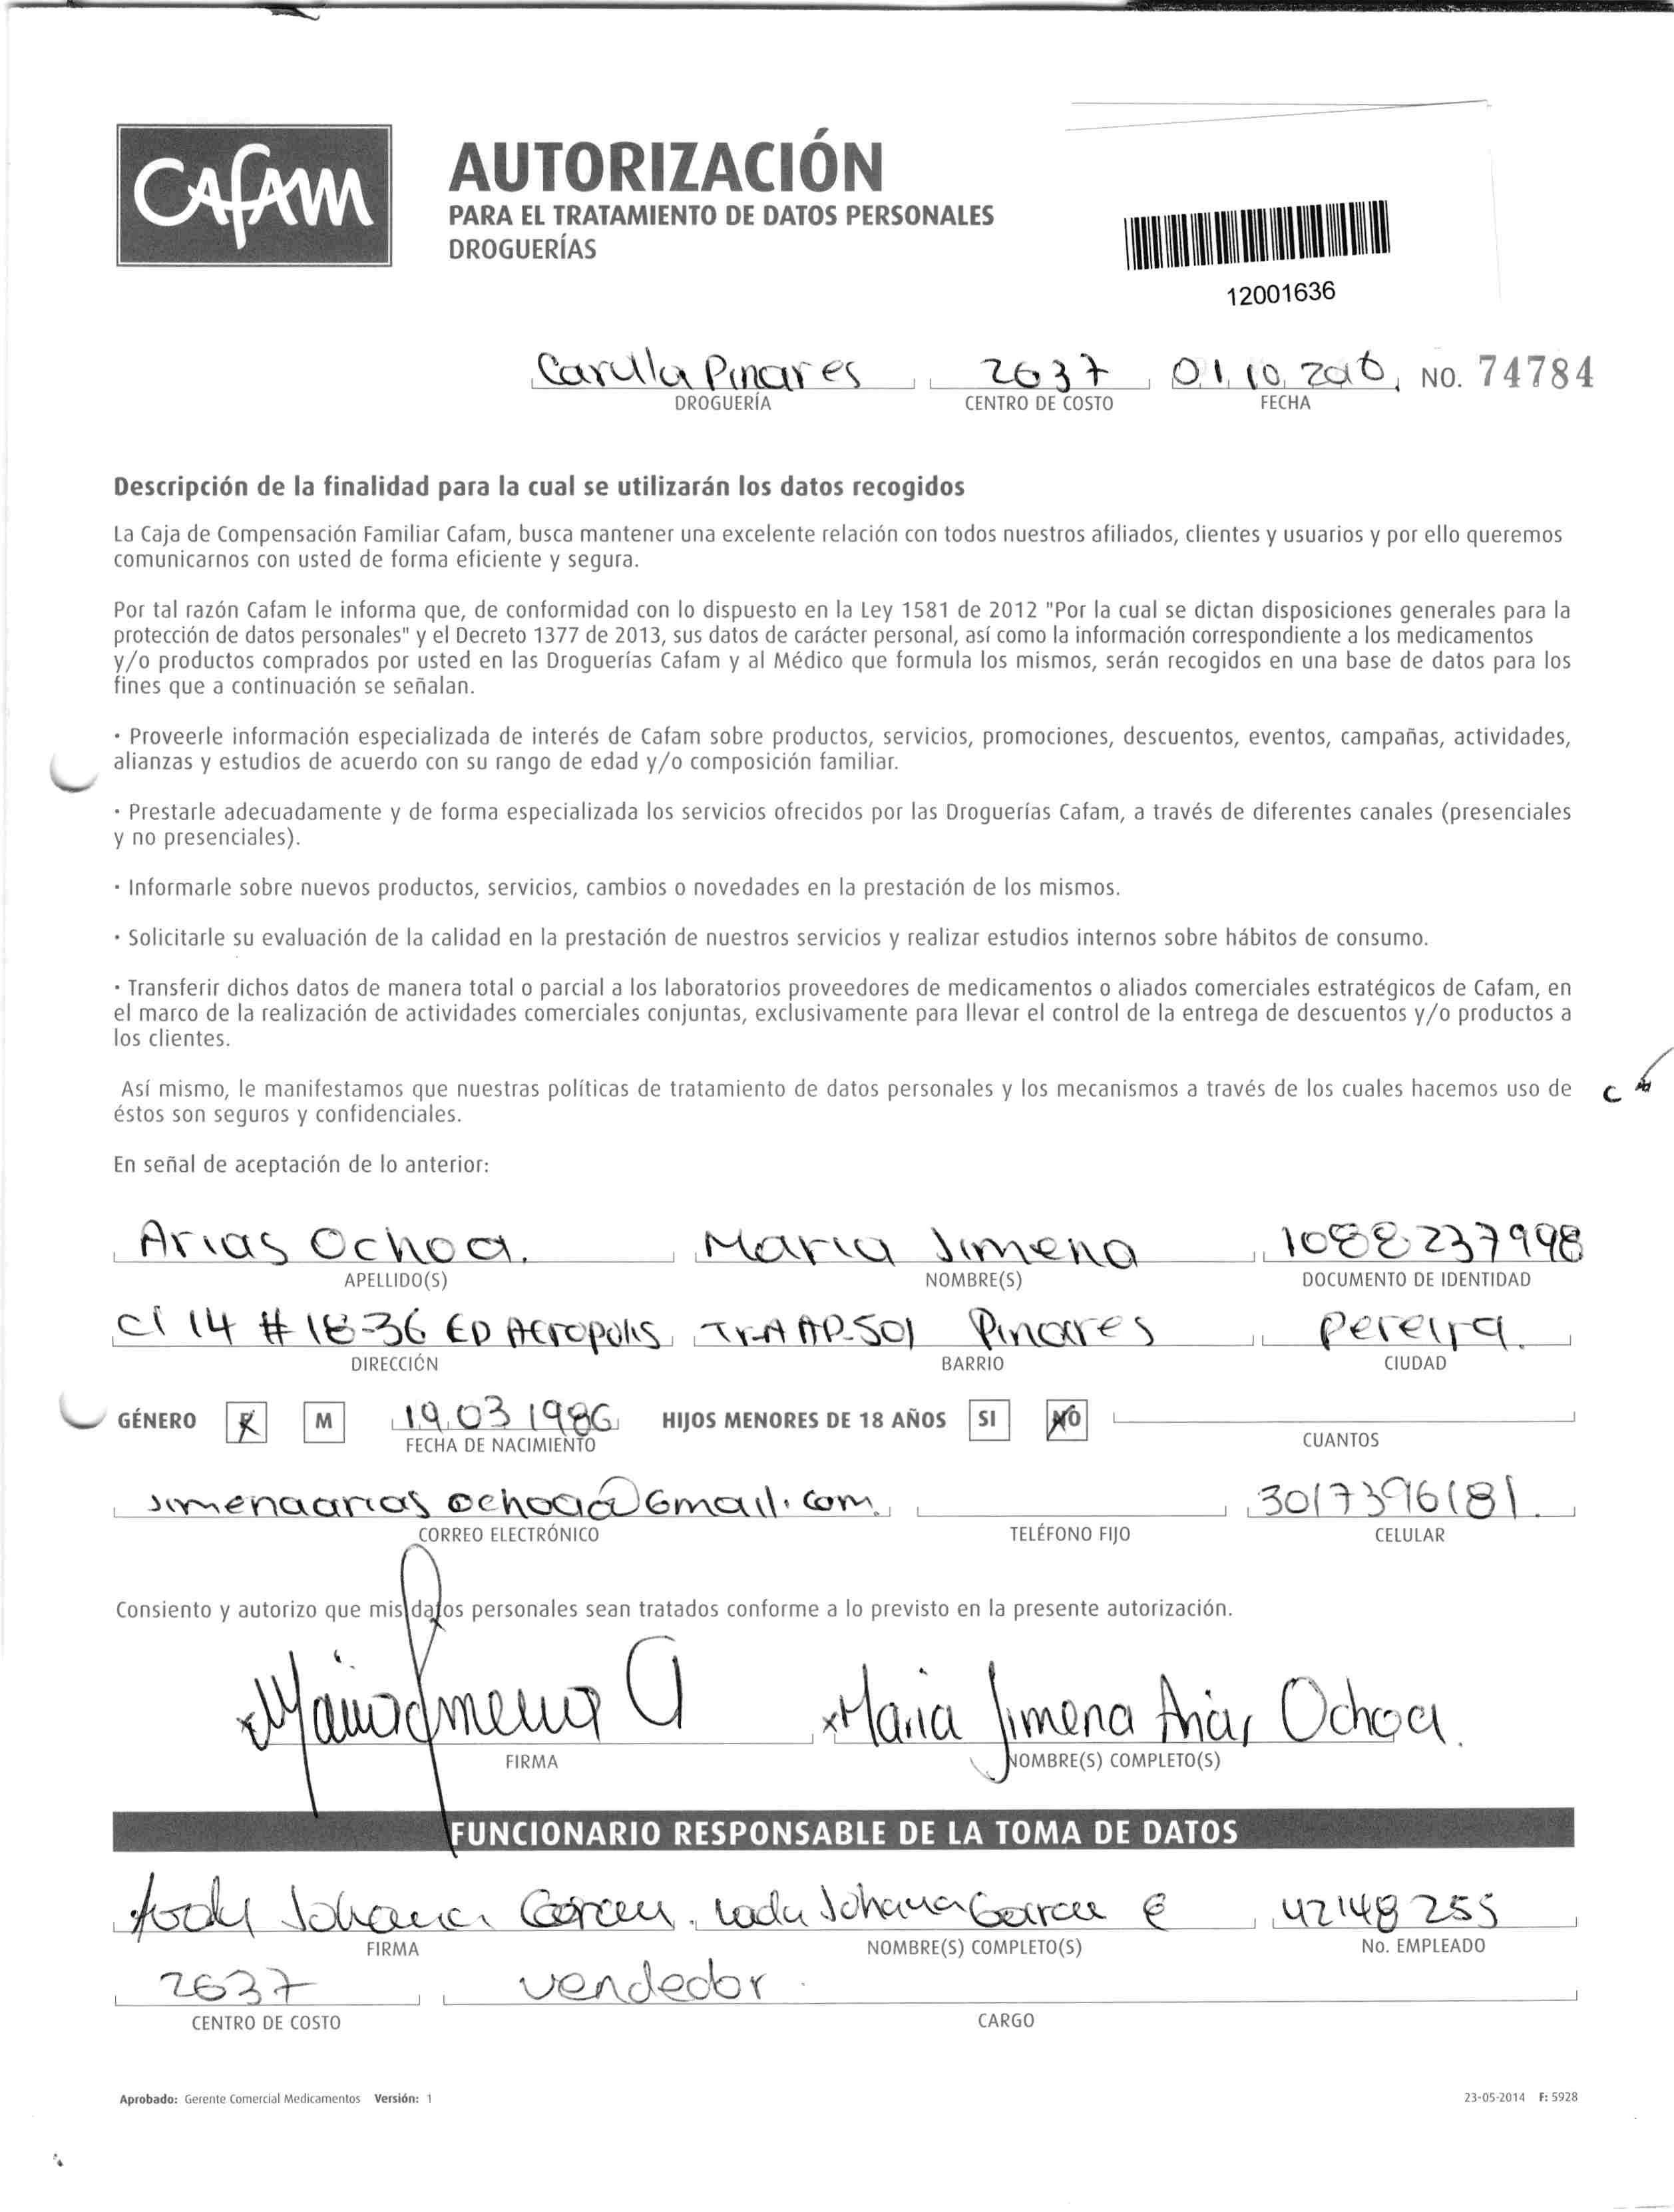 CAFAM
AUTORIZACIÓN
PARA EL TRATAMIENTO DE DATOS PERSONALES
DROGUERÍAS
12001636
Carulla Pinares 2637 01 10 2016 NO. 74784
DROGUERÍA CENTRO DE COSTO FECHA
Descripción de la finalidad para la cual se utilizarán los datos recogidos
La Caja de Compensación Familiar Cafam, busca mantener una excelente relación con todos nuestros afiliados, clientes y usuarios y por ello queremos
comunicarnos con usted de forma eficiente y segura.
Por tal razón Cafam le informa que, de conformidad con lo dispuesto en la Ley 1581 de 2012 "Por la cual se dictan disposiciones generales para la
protección de datos personales" y el Decreto 1377 de 2013, sus datos de carácter personal, así como la información correspondiente a los medicamentos
y/o productos comprados por usted en las Droguerías Cafam y al Médico que formula los mismos, serán recogidos en una base de datos para los
fines que a continuación se señalan.
· Proveerle información especializada de interés de Cafam sobre productos, servicios, promociones, descuentos, eventos, campañas, actividades,
alianzas y estudios de acuerdo con su rango de edad y/o composición familiar.
· Prestarle adecuadamente y de forma especializada los servicios ofrecidos por las Droguerías Cafam, a través de diferentes canales (presenciales
y no presenciales).
· Informarle sobre nuevos productos, servicios, cambios o novedades en la prestación de los mismos.
· Solicitarle su evaluación de la calidad en la prestación de nuestros servicios y realizar estudios internos sobre hábitos de consumo.
· Transferir dichos datos de manera total o parcial a los laboratorios proveedores de medicamentos o aliados comerciales estratégicos de Cafam, en
el marco de la realización de actividades comerciales conjuntas, exclusivamente para llevar el control de la entrega de descuentos y/o productos a
los clientes.
Así mismo, le manifestamos que nuestras políticas de tratamiento de datos personales y los mecanismos a través de los cuales hacemos uso de
éstos son seguros y confidenciales.
En señal de aceptación de lo anterior:
Arias Ochoa. Maria Jimena 1088237998
APELLIDO(S) NOMBRE(S) DOCUMENTO DE IDENTIDAD
Cl 14 # 18-36 ED Acropolis Tr-A AP-501 Pinares Pereira.
DIRECCIÓN BARRIO CIUDAD
GÉNERO F M 19 03 1986 HIJOS MENORES DE 18 AÑOS SI NO
FECHA DE NACIMIENTO CUANTOS
jimenaarias ochoa@Gmail.com. 3017396181.
CORREO ELECTRÓNICO TELÉFONO FIJO CELULAR
Consiento y autorizo que mis datos personales sean tratados conforme a lo previsto en la presente autorización.
x Maria Jimena A x Maria Jimena Arias Ochoa.
FIRMA NOMBRE(S) COMPLETO(S)
FUNCIONARIO RESPONSABLE DE LA TOMA DE DATOS
Johana Garcia Johana Garcia 42148255
FIRMA NOMBRE(S) COMPLETO(S) No. EMPLEADO
2637 vendedor
CENTRO DE COSTO CARGO
Aprobado: Gerente Comercial Medicamentos Versión: 1 23-05-2014 F: 5928